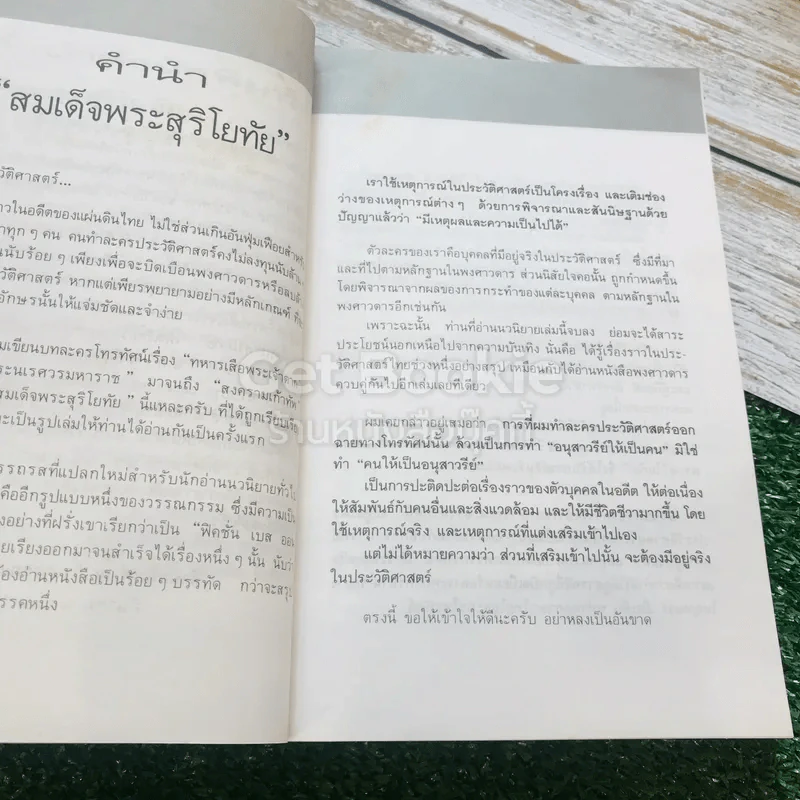 คำนำ
“สมเด็จพระสุริโยทัย”
วัติศาสตร์...
าวในอดีตของแผ่นดินไทย ไม่ใช่ส่วนเกินอันฟุ่มเฟือยสำหรั
าทุก ๆ คน คนทำละครประวัติศาสตร์คงไม่ลงทุนนับล้าน
นนับร้อย ๆ เพียงเพื่อจะบิดเบือนพงศาวดารหรือลบล้
วัติศาสตร์ หากแต่เพียรพยายามอย่างมีหลักเกณฑ์ ที่
อักษรนั้นให้แจ่มชัดและจำง่าย
มเขียนบทละครโทรทัศน์เรื่อง “ทหารเสือพระเจ้าตา
ะนเรศวรมหาราช” มาจนถึง “สงครามเก้าทัพ
สมเด็จพระสุริโยทัย” นี้แหละครับ ที่ได้ถูกเรียบเรี
ะเป็นรูปเล่มให้ท่านได้อ่านกันเป็นครั้งแรก
รรถรสที่แปลกใหม่สำหรับนักอ่านนวนิยายทั่วไ
คืออีกรูปแบบหนึ่งของวรรณกรรม ซึ่งมีความเป็น
งอย่างที่ฝรั่งเขาเรียกว่าเป็น “ฟิคชั่น เบส ออน
ยเรียงออกมาจนสำเร็จได้เรื่องหนึ่ง ๆ นั้น นับว่
้องอ่านหนังสือเป็นร้อย ๆ บรรทัด กว่าจะสรุป
รรคหนึ่ง
เราใช้เหตุการณ์ในประวัติศาสตร์เป็นโครงเรื่อง และเติมช่อง
ว่างของเหตุการณ์ต่าง ๆ ด้วยการพิจารณาและสันนิษฐานด้วย
ปัญญาแล้วว่า “มีเหตุผลและความเป็นไปได้”
ตัวละครของเราคือบุคคลที่มีอยู่จริงในประวัติศาสตร์ ซึ่งมีที่มา
และที่ไปตามหลักฐานในพงศาวดาร ส่วนนิสัยใจคอนั้น ถูกกำหนดขึ้น
โดยพิจารณาจากผลของการกระทำของแต่ละบุคคล ตามหลักฐานใน
พงศาวดารอีกเช่นกัน
เพราะฉะนั้น ท่านที่อ่านนวนิยายเล่มนี้จบลง ย่อมจะได้สาระ
ประโยชน์นอกเหนือไปจากความบันเทิง นั่นคือ ได้รู้เรื่องราวในประ-
วัติศาสตร์ไทยช่วงหนึ่งอย่างสรุป เหมือนกับได้อ่านหนังสือพงศาวดาร
ควบคู่กันไปอีกเล่มเลยทีเดียว
ผมเคยกล่าวอยู่เสมอว่า การที่ผมทำละครประวัติศาสตร์ออก
ฉายทางโทรทัศน์นั้น ล้วนเป็นการทำ “อนุสาวรีย์ให้เป็นคน” มิใช่
ทำ “คนให้เป็นอนุสาวรีย์”
เป็นการปะติดปะต่อเรื่องราวของตัวบุคคลในอดีต ให้ต่อเนื่อง
ให้สัมพันธ์กับคนอื่นและสิ่งแวดล้อม และให้มีชีวิตชีวามากขึ้น โดย
ใช้เหตุการณ์จริง และเหตุการณ์ที่แต่งเสริมเข้าไปเอง
แต่ไม่ได้หมายความว่า ส่วนที่เสริมเข้าไปนั้น จะต้องมีอยู่จริง
ในประวัติศาสตร์
ตรงนี้ ขอให้เข้าใจให้ดีนะครับ อย่าหลงเป็นอันขาด
Get Bookie
ร้านหนังสือบุ๊คกี้